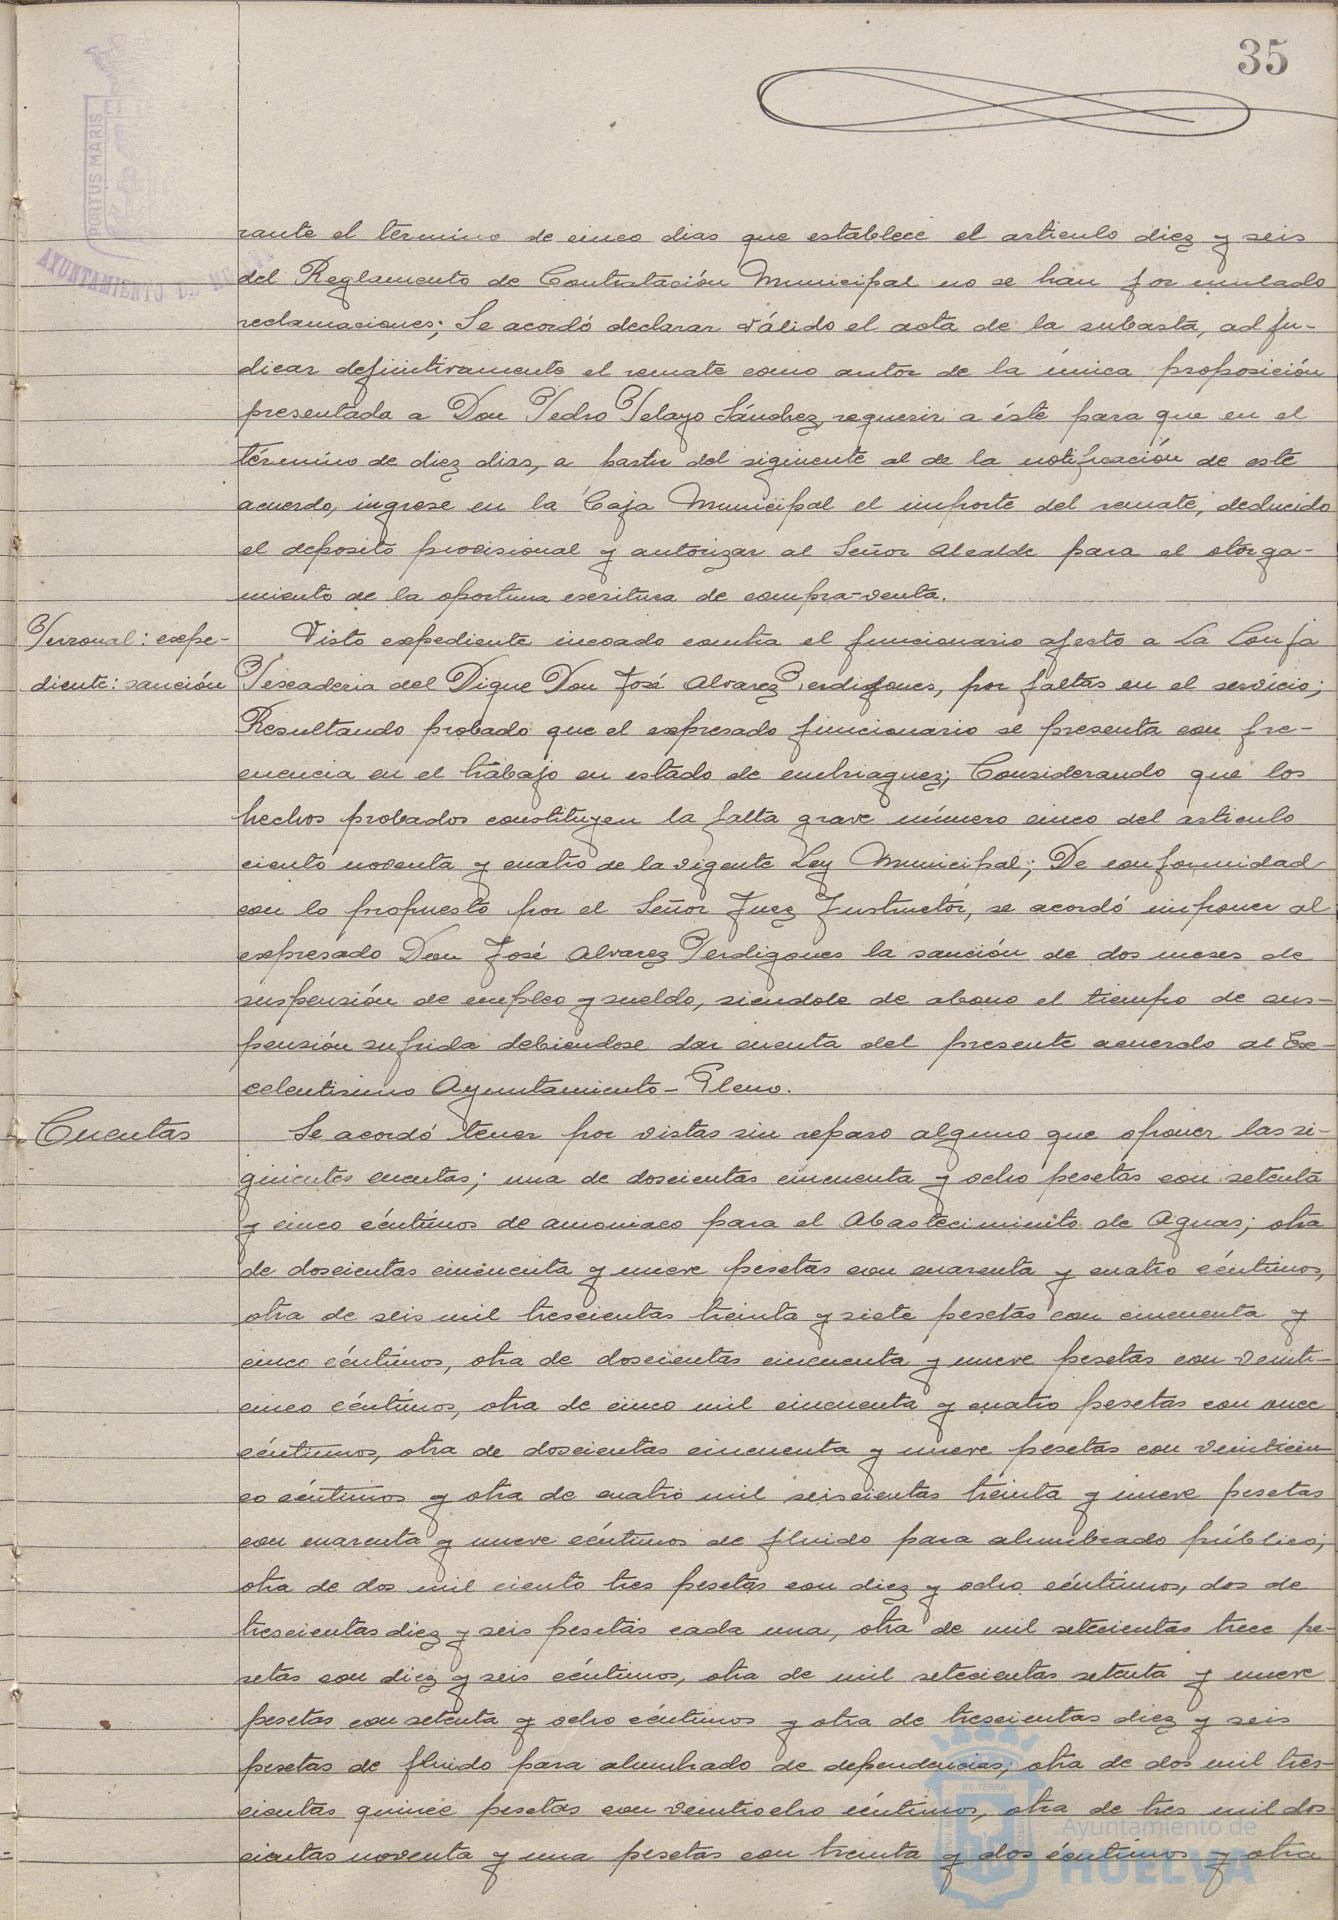 35
PORTUS MARIS
AYUNTAMIENTO DE
rante el termino de cinco dias que establece el articulo diez y seis
del Reglamento de Contratación Municipal no se han formulado
reclamaciones; Se acordó declarar válido el acta de la subasta, adju-
dicar definitivamente el remate como autor de la única proposición
presentada a Don Pedro Pelayo Sánchez, requerir a éste para que en el
término de diez dias, a partir del siguiente al de la notificación de este
acuerdo, ingrese en la Caja Municipal el importe del remate, deducido
el deposito provisional y autorizar al Señor Alcalde para el otorga-
miento de la oportuna escritura de compra-venta.
Personal: expe-
diente: sanción
Visto expediente incoado contra el funcionario afecto a La Lonja
Pescaderia del Dique Don José Alvarez Perdigones, por faltas en el servicio;
Resultando probado que el expresado funcionario se presenta con fre-
cuencia en el trabajo en estado de embriaguez; Considerando que los
hechos probados constituyen la falta grave número cinco del articulo
ciento noventa y cuatro de la vigente Ley Municipal; De conformidad
con lo propuesto por el Señor Juez Instructor, se acordó imponer al
expresado Don José Alvarez Perdigones la sanción de dos meses de
suspensión de empleo y sueldo, siendole de abono el tiempo de sus-
pensión sufrida debiendose dar cuenta del presente acuerdo al Ex-
celentisimo Ayuntamiento-Pleno.
Cuentas
Se acordó tener por vistas sin reparo alguno que oponer las si-
guientes cuentas; una de doscientas cincuenta y ocho pesetas con setenta
y cinco céntimos de amoniaco para el Abastecimiento de Aguas; otra
de doscientas cincuenta y nueve pesetas con cuarenta y cuatro céntimos,
otra de seis mil trescientas treinta y siete pesetas con cincuenta y
cinco céntimos, otra de doscientas cincuenta y nueve pesetas con veinti-
cinco céntimos, otra de cinco mil cincuenta y cuatro pesetas con once
céntimos, otra de doscientas cincuenta y nueve pesetas con veinticin
co céntimos y otra de cuatro mil seiscientas treinta y nueve pesetas
con cuarenta y nueve céntimos de fluido para alumbrado público;
otra de dos mil ciento tres pesetas con diez y ocho céntimos, dos de
trescientas diez y seis pesetas cada una, otra de mil setecientas trece pe-
setas con diez y seis céntimos, otra de mil setecientas setenta y nueve
pesetas con setenta y ocho céntimos y otra de trescientas diez y seis
pesetas de fluido para alumbrado de dependencias; otra de dos mil tres-
cientas quince pesetas con veintiocho céntimos, otra de tres mil dos
cientas noventa y una pesetas con treinta y dos céntimos y otra
Ayuntamiento de
HUELVA